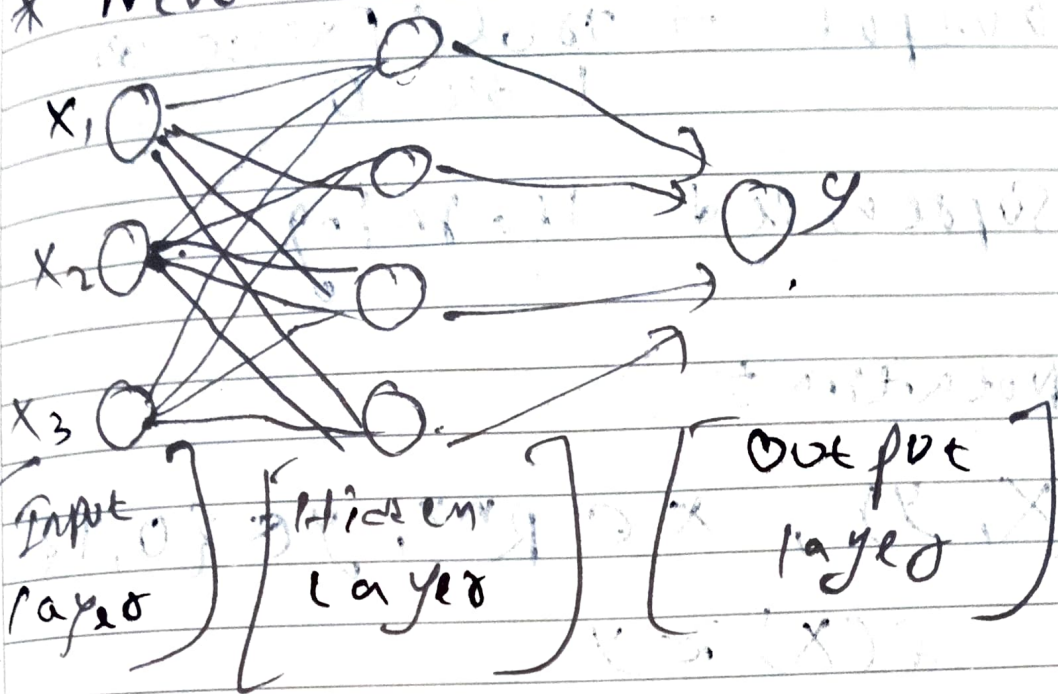 X1
X2
X3
y
Input
layer
Hidden
Layer
Output
layer